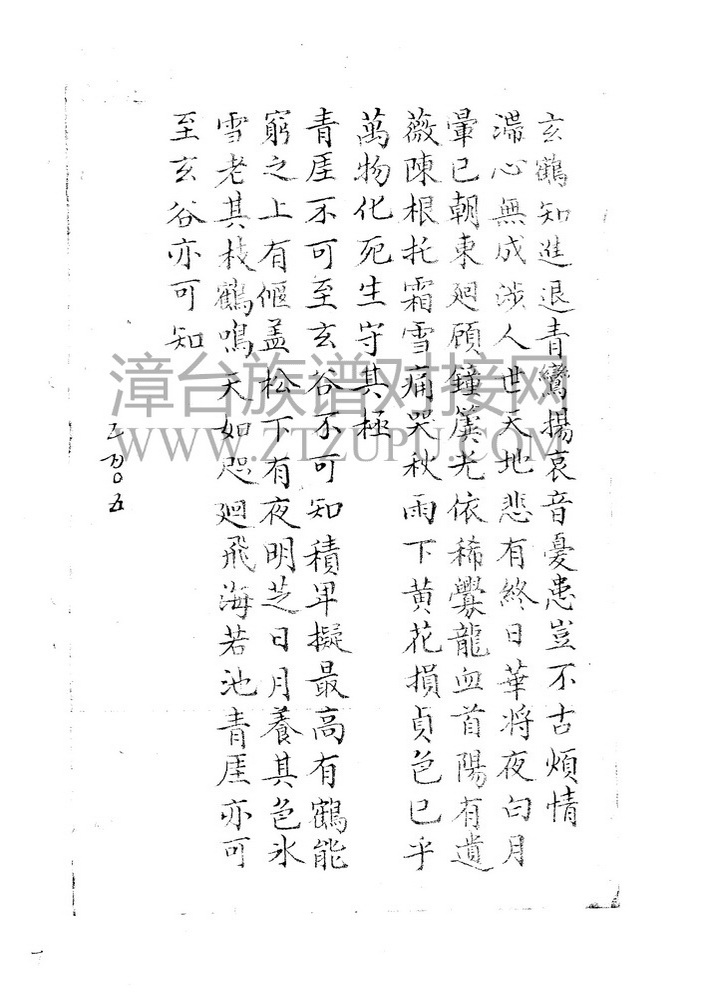 玄鶴知進退青鸞揚哀音憂患豈不古煩情
滯心無成涉人世天地悲有終日華將夜白月
暈已朝東廻顧鐘簴光依稀爨龍血首陽有遺
薇陳根托霜雪痛哭秋雨下黄花損貞色已乎
萬物化死生守其極
青厓不可至玄谷不可知積卑擬最高有鶴能
窮之上有偃盖松下有夜明芝日月養其色氷
雪老其枝鶴鳴天如咫廻飛海若池青厓亦可
至玄谷亦可知
五
一
漳台族谱对接网
WWW.ZTZUPU.COM